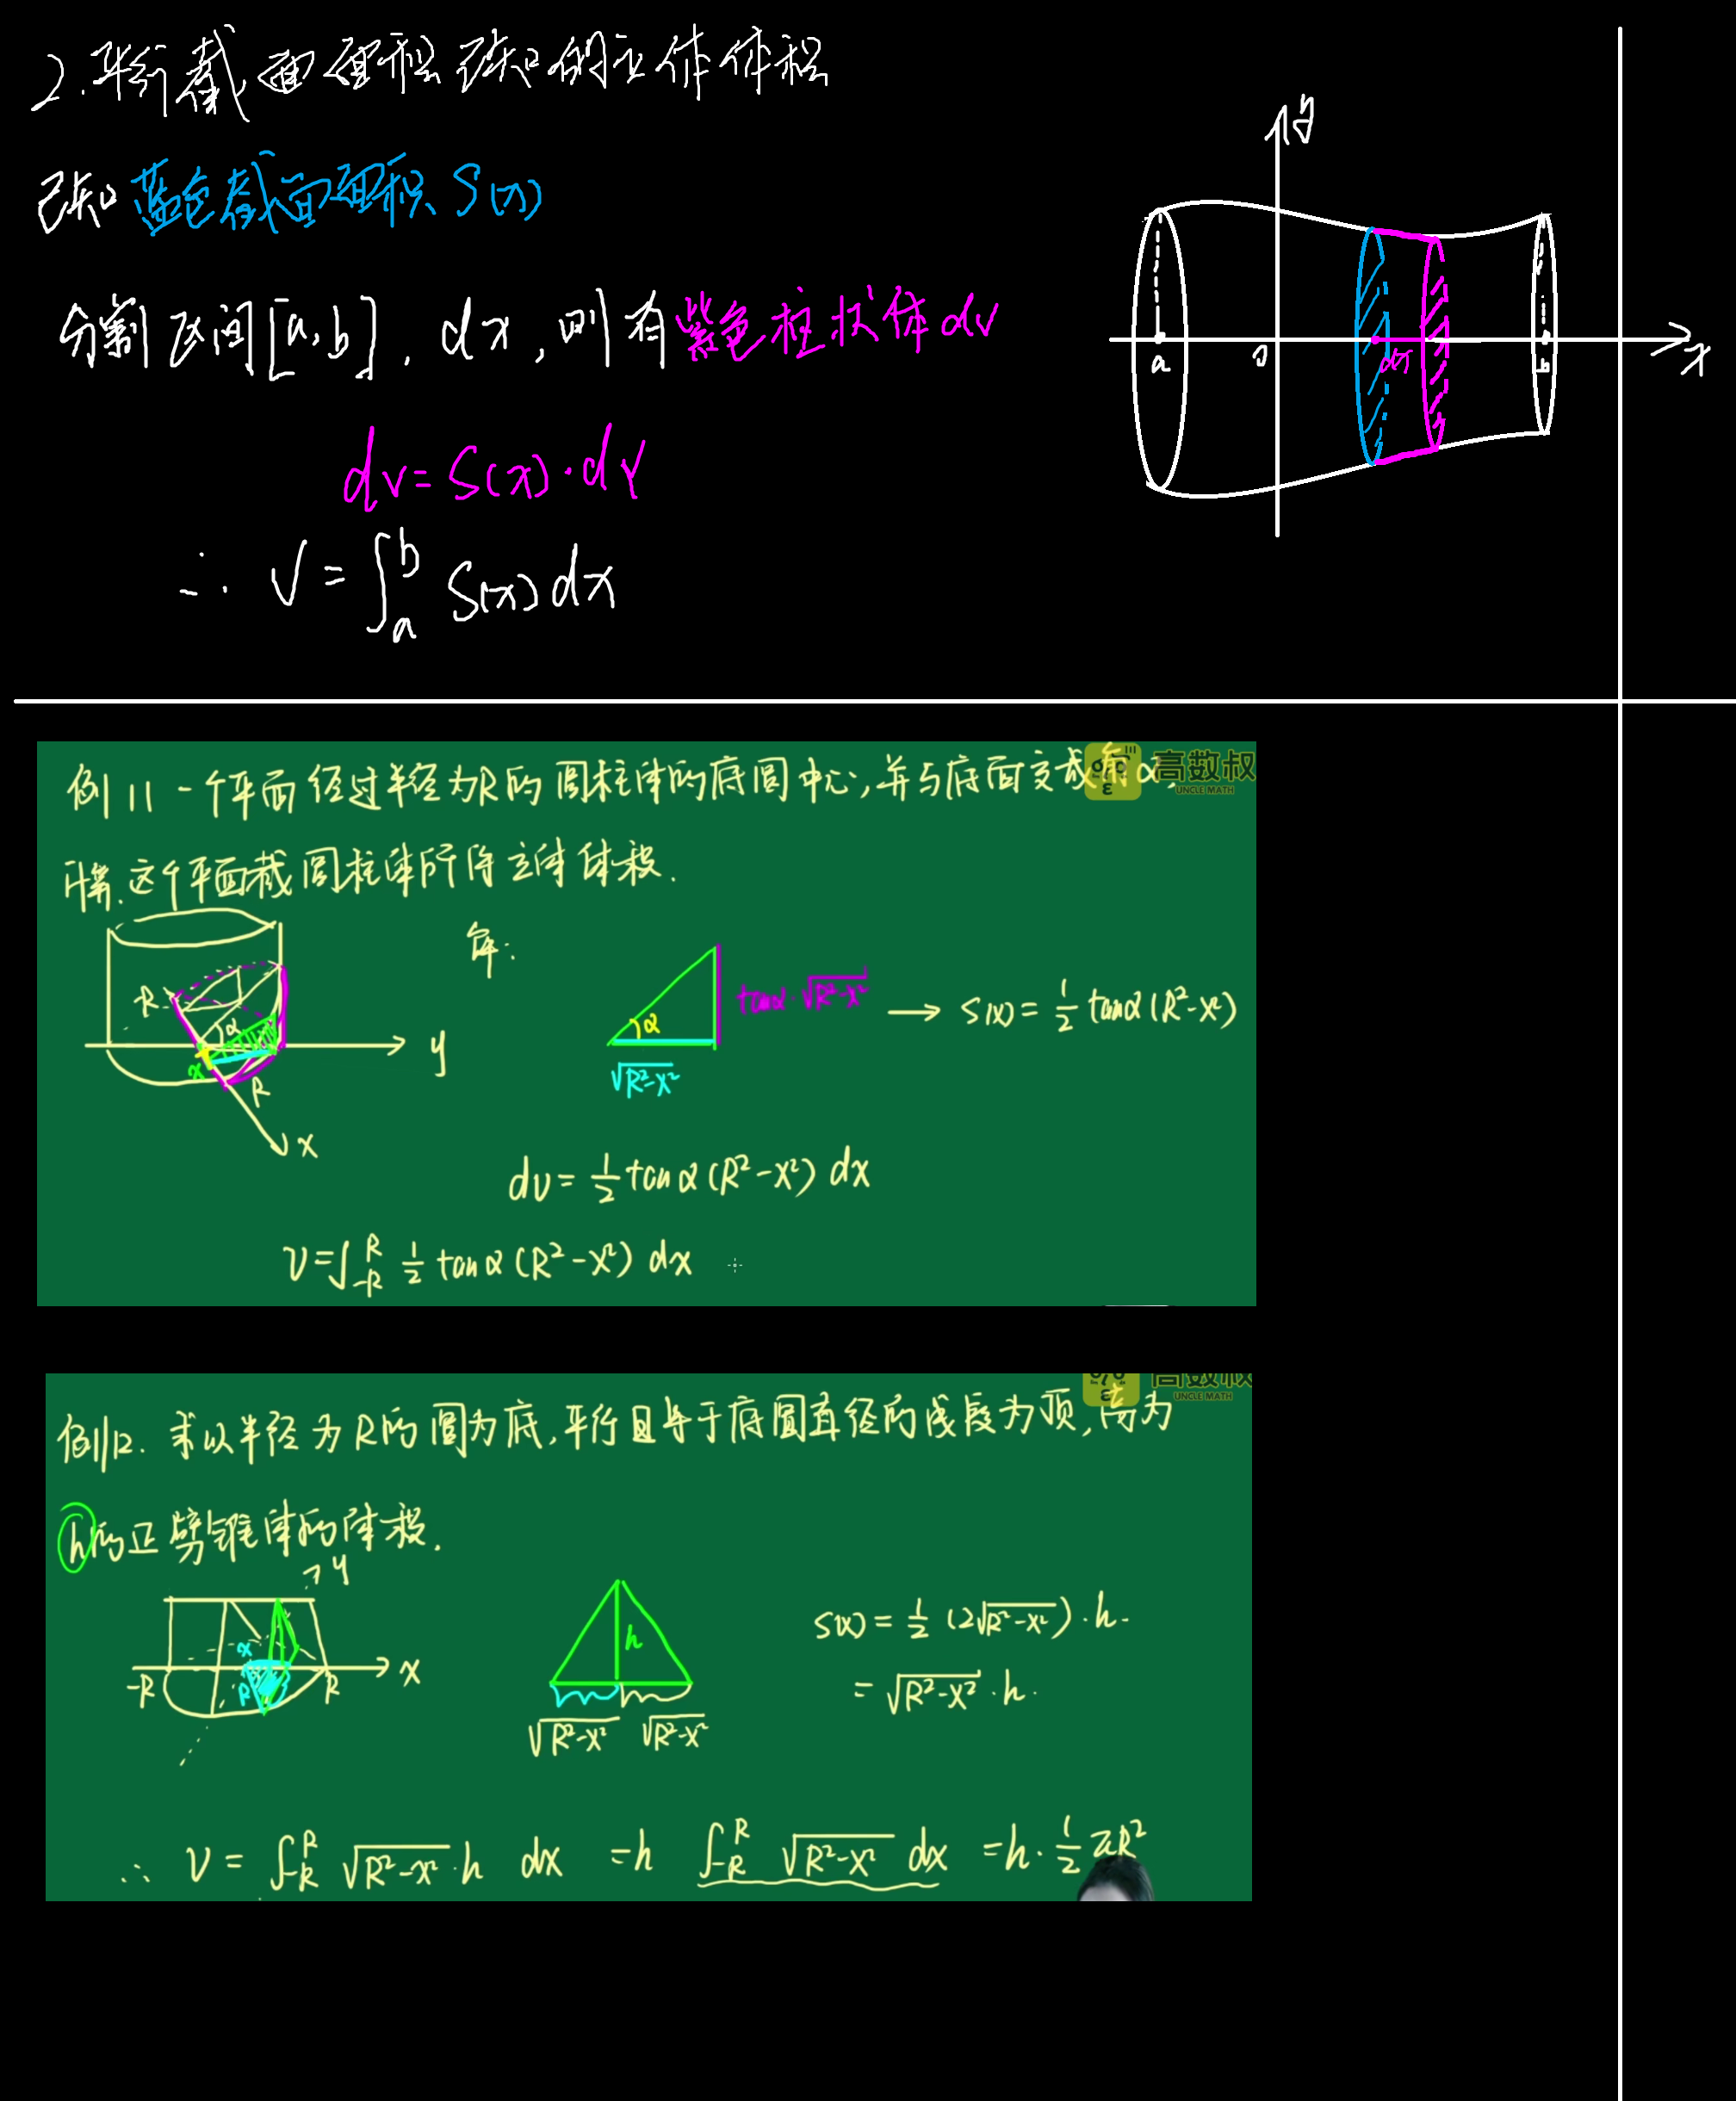 2.平行截面面积已知的立体体积
已知蓝色截面面积 S(x)
分割区间[a,b],dx,则有紫色柱状体dv
dv=S(x)·dx
∴ V=∫_a^b S(x)dx
y
a
0
dx
b
x
例11 一个平面经过半径为R的圆柱体的底圆中心,并与底面交成角α,
高数叔
UNCLE MATH
计算.这个平面截圆柱体所得立体体积.
解:
-R
α
x
R
y
x
α
tanα·√(R²-x²)
√(R²-x²)
→ S(x)=1/2 tanα(R²-x²)
dv=1/2 tanα(R²-x²) dx
v=∫_{-R}^{R} 1/2 tanα(R²-x²) dx
高数叔
UNCLE MATH
例12. 求以半径为R的圆为底,平行且等于底圆直径的线段为顶,高为
h的正劈锥体的体积.
y
x
-R
R
R
x
h
√(R²-x²) √(R²-x²)
S(x)=1/2 (2√(R²-x²))·h.
=√(R²-x²)·h.
∴ v=∫_{-R}^{R} √(R²-x²)·h dx =h ∫_{-R}^{R} √(R²-x²) dx =h·1/2 πR²